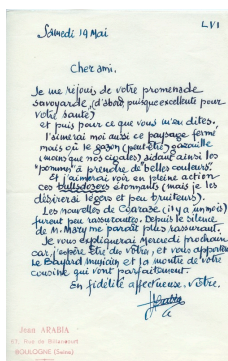 LVI
Samedi 19 Mai
Cher ami,
Je me réjouis de votre promenade
savoyarde, (d'abord, puisque excellente pour
votre santé)
et puis pour ce que vous m'en dites.
J'aimerai moi aussi ce paysage fermé
mais où le gazon (peut-être) gazouille
(moins que nos cigales) aidant ainsi les
"pommes" à prendre de belles couleurs.
Et j'aimerai voir en pleine action
ces bulldozers étonnants (mais je les
désirerai légers et peu bruiteurs).
Les nouvelles de (il y a un mois)
furent peu rassurantes. Depuis le silence
de M. Mary me paraît plus rassurant.
Je vous expliquerai Mercredi prochain
car j'espère être des vôtres, et vous apporter
le Bayard mugicien et la montre de votre
cousine qui vont parfaitement.
En fidélité affectueuse, votre,
Jean ARABIA
Rue de Billancourt
BOULOGNE (Seine)